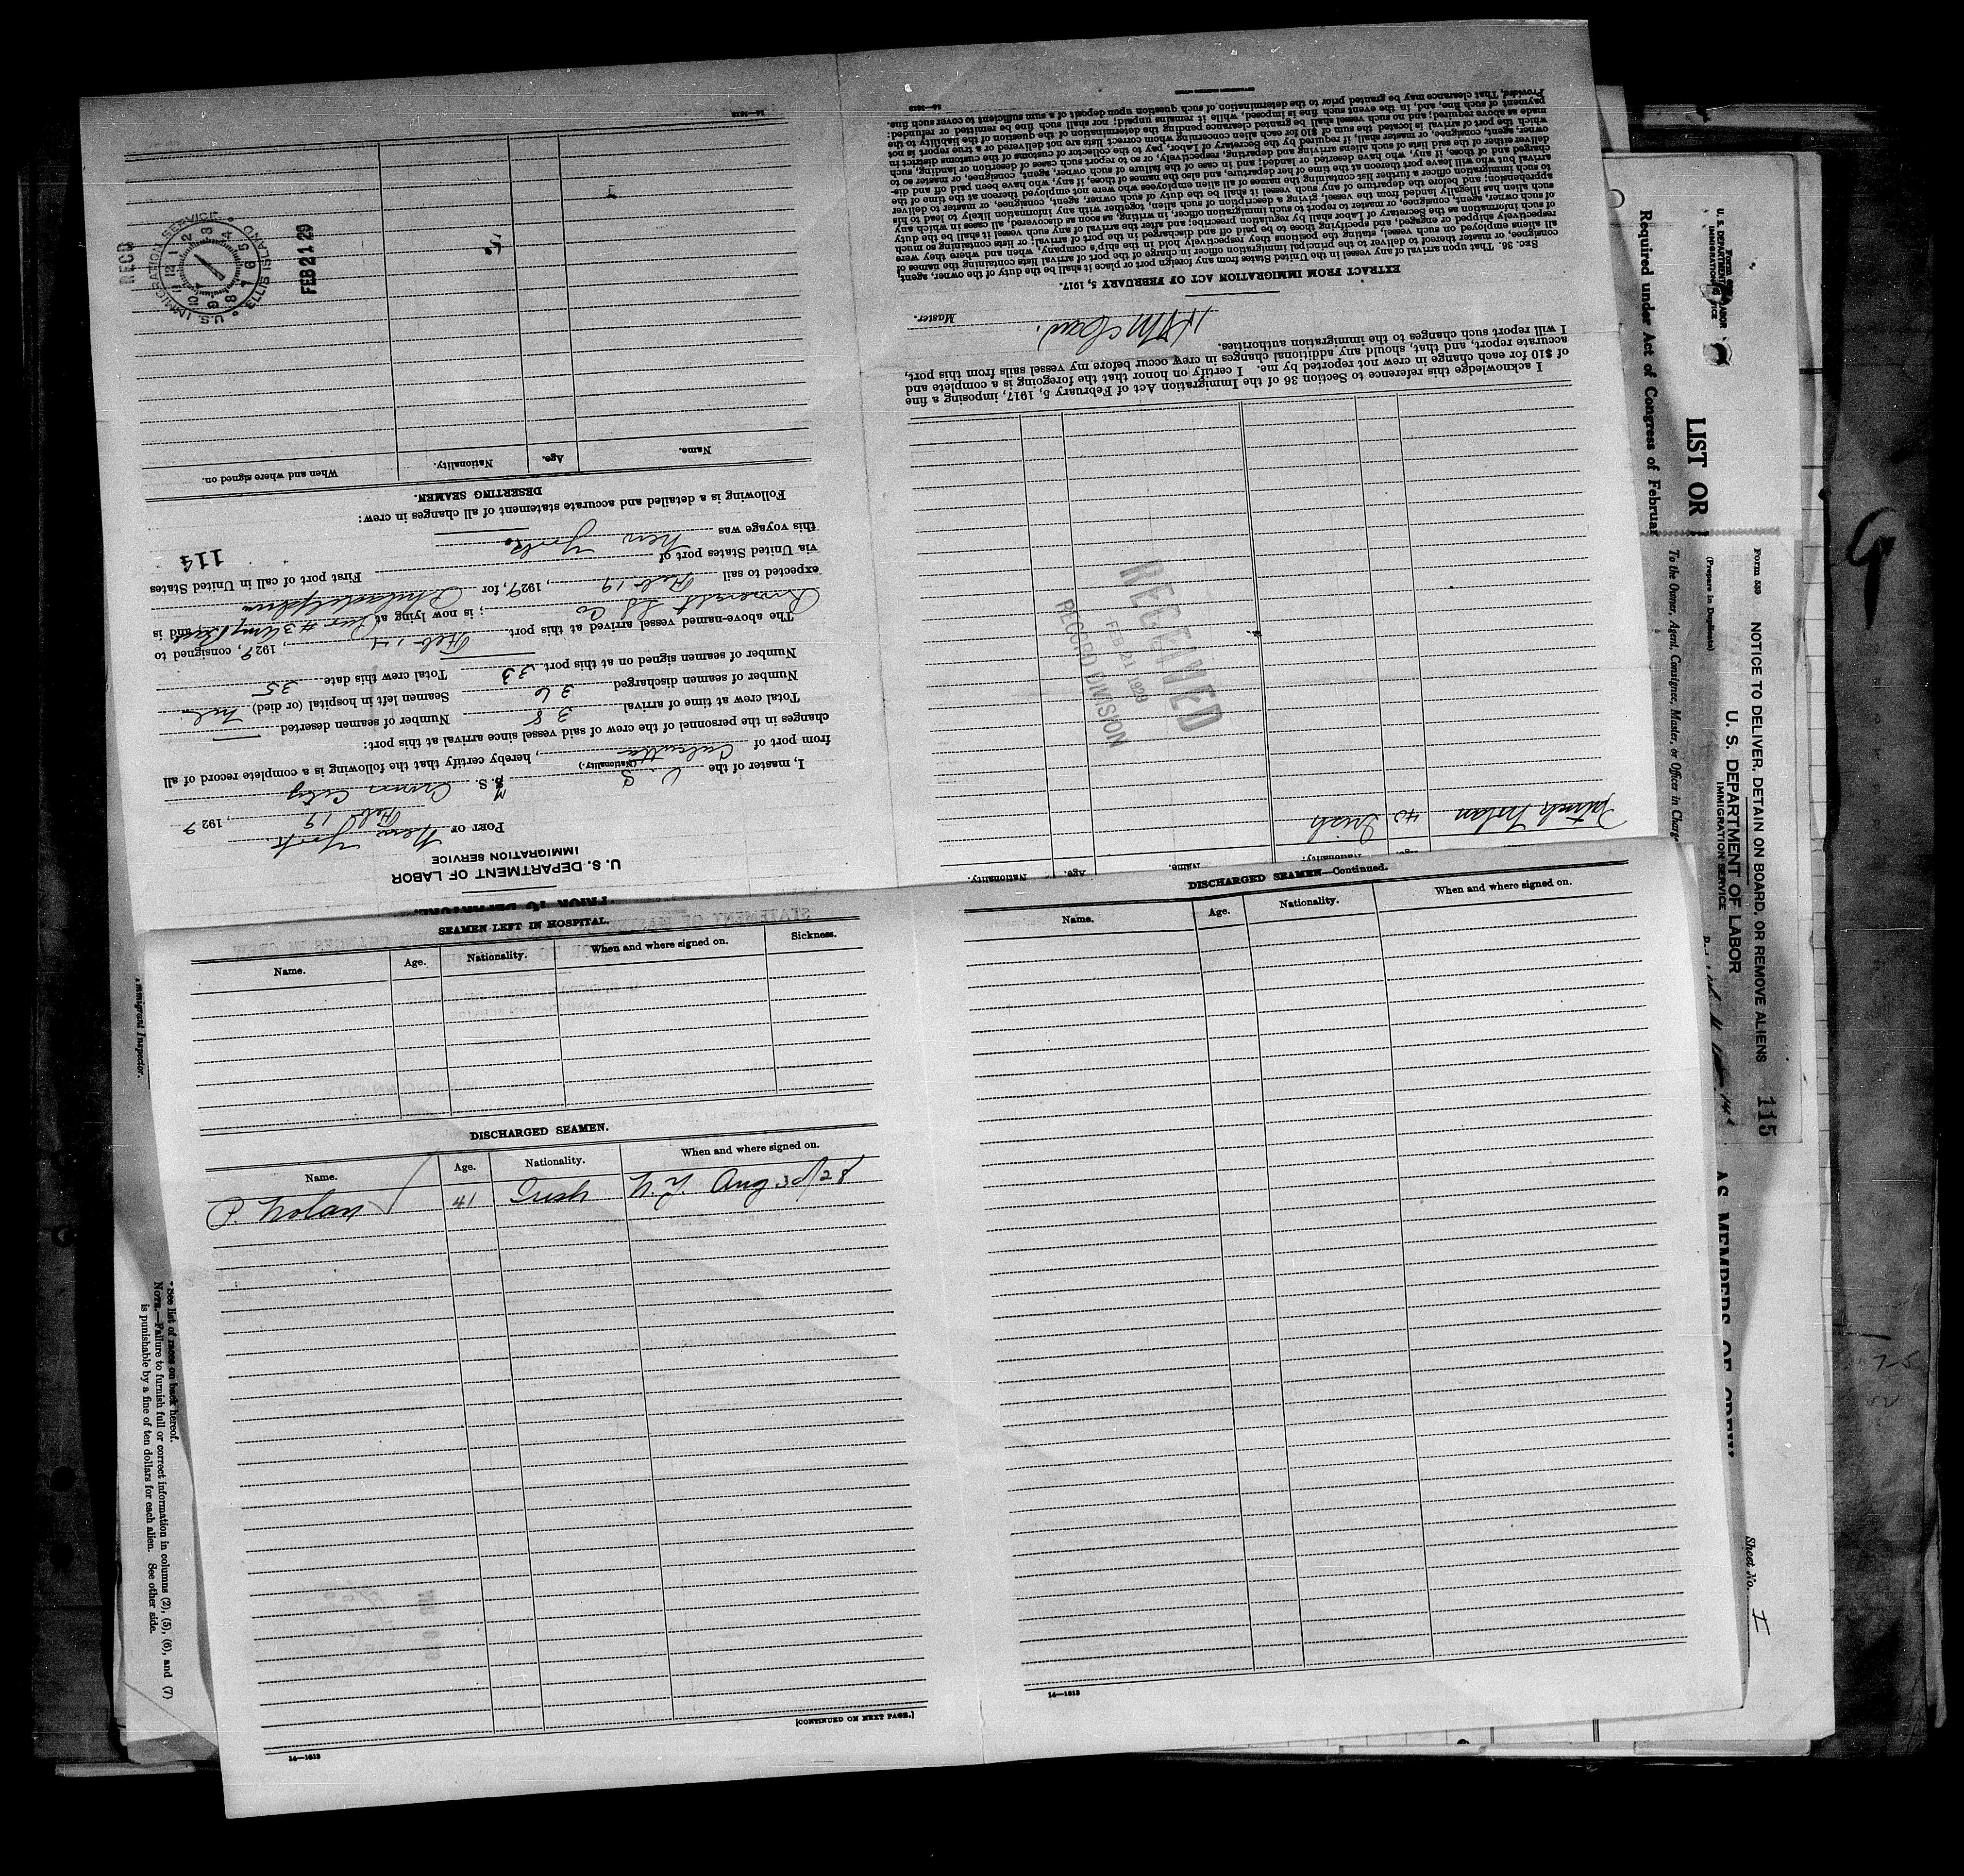 PRIOR TO DEPARTURE.
U. S. DEPARTMENT OF LABOR
IMMIGRATION SERVICE
PORT OF New York
Feb 19, 1929
I, master of the U S S. S. City
(Nationality.)
from port of Calcutta, hereby certify that the following is a complete record of all
changes in the personnel of the crew of said vessel since arrival at this port:
Total crew at time of arrival 38 Number of seamen deserted
Number of seamen discharged 36 Seamen left in hospital (or died) Nil
Number of seamen signed on at this port 33 Total crew this date 35
The above-named vessel arrived at this port Feb 14, 1929, consigned to
Roosevelt SS Co; is now lying at Pier #3 and is
expected to sail Feb 19, 1929, for Philadelphia
via United States port of First port of call in United States
this voyage was New York.
114
Following is a detailed and accurate statement of all changes in crew:
DESERTING SEAMEN.
Name. Age. Nationality. When and where signed on.
REC'D
U.S. IMMIGRATION SERVICE
ELLIS ISLAND
1 2 3 4 5 6 7 8 9 10 11 12
FEB 21 29
14—1613
Name. Age. Nationality.
Patrick Nolan 40 Irish
Name. Age. Nationality.
RECEIVED
FEB 21 1929
RECORD DIVISION
I acknowledge this reference to Section 36 of the Immigration Act of February 5, 1917, imposing a fine
of $10 for each change in crew not reported by me. I certify on honor that the foregoing is a complete and
accurate report, and that, should any additional changes in crew occur before my vessel sails from this port,
I will report such changes to the immigration authorities.
Master.
EXTRACT FROM IMMIGRATION ACT OF FEBRUARY 5, 1917.
SEC. 36. That upon arrival of any vessel in the United States from any foreign port or place it shall be the duty of the owner, agent,
consignee, or master thereof to deliver to the principal immigration officer in charge of the port of arrival lists containing the names of
all aliens employed on such vessel, stating the positions they respectively hold in the ship's company, when and where they were
respectively shipped or engaged, and specifying those to be paid off and discharged in the port of arrival; or lists containing so much
of such information as the Secretary of Labor shall by regulation prescribe; and after the arrival of any such vessel it shall be the duty
of such owner, agent, consignee, or master to report to such immigration officer, in writing, as soon as discovered, all cases in which any
such alien has illegally landed from the vessel, giving a description of such alien, together with any information likely to lead to his
apprehension; and before the departure of any such vessel it shall be the duty of such owner, agent, consignee, or master to deliver
to such immigration officer a further list containing the names of all alien employees who were not employed thereon at the time of the
arrival but who will leave port thereon at the time of her departure, and also the names of those, if any, who have been paid off and dis-
charged and of those, if any, who have deserted or landed; and in case of the failure of such owner, agent, consignee, or master so to
deliver either of the said lists of such aliens arriving and departing, respectively, or so to report such cases of desertion or landing, such
owner, agent, consignee, or master shall, if required by the Secretary of Labor, pay to the collector of customs of the customs district in
which the port of arrival is located the sum of $10 for each alien concerning whom correct lists are not delivered or a true report is not
made as above required; and no such vessel shall be granted clearance pending the determination of the question of the liability to the
payment of such fine, and, in the event such fine is imposed, while it remains unpaid; nor shall such fine be remitted or refunded:
Provided, That clearance may be granted prior to the determination of such question upon deposit of a sum sufficient to cover such fine.
14—1613
SEAMEN LEFT IN HOSPITAL.
Name. Age. Nationality. When and where signed on. Sickness.
DISCHARGED SEAMEN.
Name. Age. Nationality. When and where signed on.
P. Nolan 41 Irish N.Y. Aug 30/28
[CONTINUED ON NEXT PAGE.]
14—1613
DISCHARGED SEAMEN—Continued.
Name. Age. Nationality. When and where signed on.
14—1613
U. S. DEPARTMENT OF LABOR
IMMIGRATION SERVICE
LIST OR
Required under Act of Congress of Februar
Form 539
NOTICE TO DELIVER, DETAIN ON BOARD, OR REMOVE ALIENS
115
(Prepare in Duplicate)
U. S. DEPARTMENT OF LABOR
IMMIGRATION SERVICE
To the Owner, Agent, Consignee, Master, or Officer in Charge
AS MEMBERS OF CREW
Sheet No. I
Immigrant Inspector.
*See list of races on back hereof.
NOTE.—Failure to furnish full or correct information in columns (2), (5), (6), and (7)
is punishable by a fine of ten dollars for each alien. See other side.
G